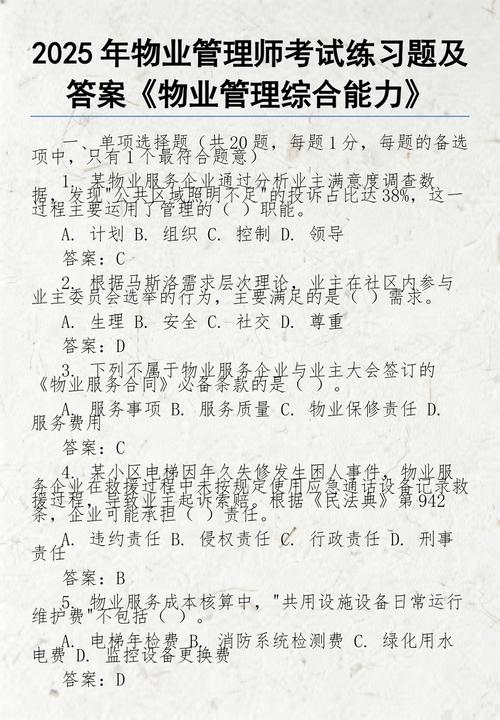 2025年物业管理师考试练习题及
答案《物业管理综合能力》
一、单项选择题（共20题，每题1分，每题的备选
项中，只有1个最符合题意）
1. 某物业服务企业通过分析业主满意度调查数
据，发现"公共区域照明不足"的投诉占比达38%，这一
过程主要运用了管理的（ ）职能。
A. 计划 B. 组织 C. 控制 D. 领导
答案：C
2. 根据马斯洛需求层次理论，业主在社区内参与
业主委员会选举的行为，主要满足的是（ ）需求。
A. 生理 B. 安全 C. 社交 D. 尊重
答案：D
3. 下列不属于物业服务企业与业主大会签订的
《物业服务合同》必备条款的是（ ）。
A. 服务事项 B. 服务质量 C. 物业保修责任 D.
服务费用
答案：C
4. 某小区电梯因年久失修发生困人事件，物业服
务企业在救援过程中未按规定使用应急通话设备记录救
援过程，导致业主起诉索赔。根据《民法典》第942
条，企业可能承担（ ）责任。
A. 违约责任 B. 侵权责任 C. 行政责任 D. 刑事
责任
答案：B
5. 物业服务成本核算中，"共用设施设备日常运行
维护费"不包括（ ）。
A. 电梯年检费 B. 消防系统检测费 C. 绿化用水
电费 D. 监控设备更换费
答案：D